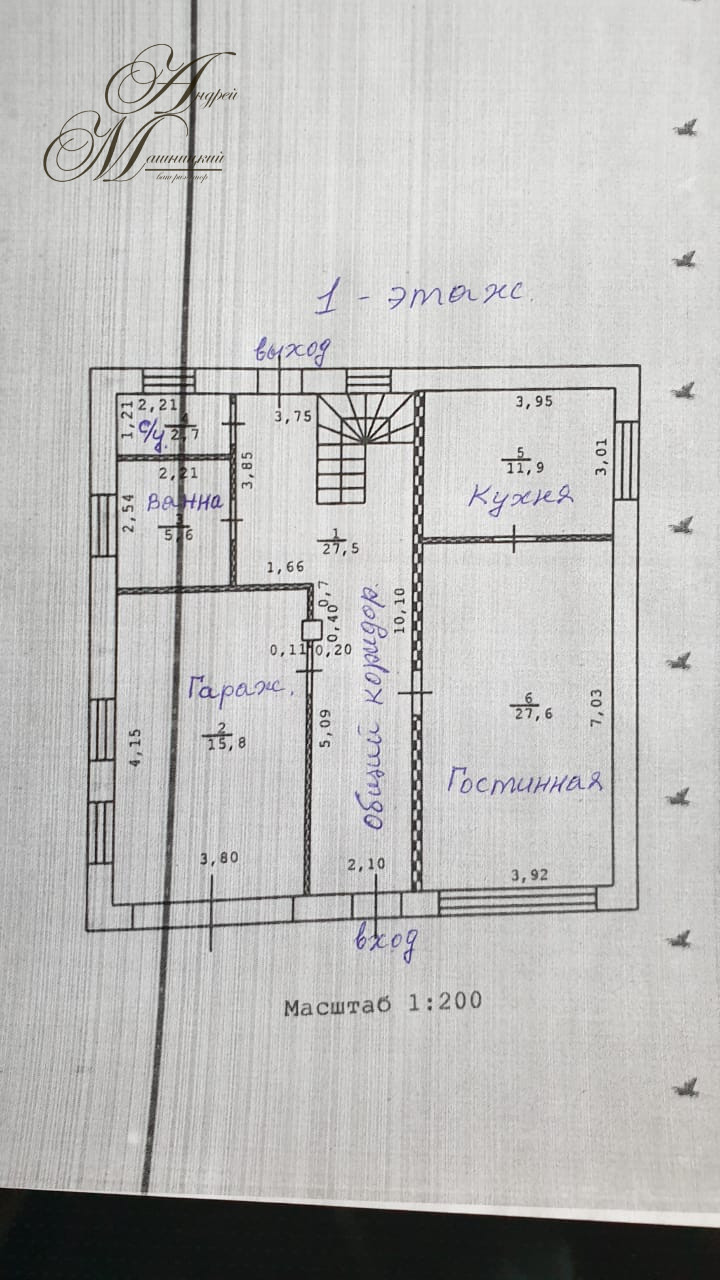 Андрей
Машницкий
ваш риэлтор
1 - этаж.
выход
1,21
2,21
с/у.
4
2,7
3,75
3,95
5
11,9
3,01
Кухня
2,21
3,85
2,54
Ванна
3
5,6
1
27,5
1,66
0,7
0,40
10,10
0,11
0,20
Общий коридор.
Гараж.
2
15,8
4,15
5,09
6
27,6
7,03
Гостинная
3,80
2,10
3,92
вход
Масштаб 1:200